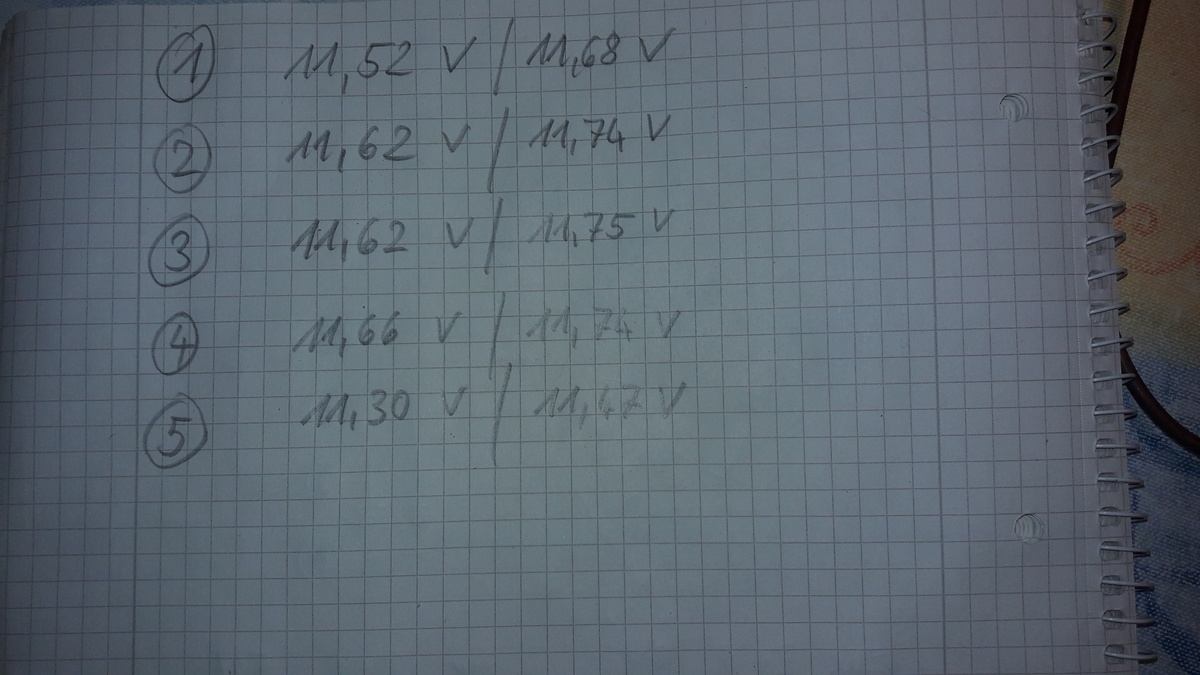 1 11,52 V / 11,68 V
2 11,62 V / 11,74 V
3 11,62 V / 11,75 V
4 11,66 V / 11,74 V
5 11,30 V / 11,47 V